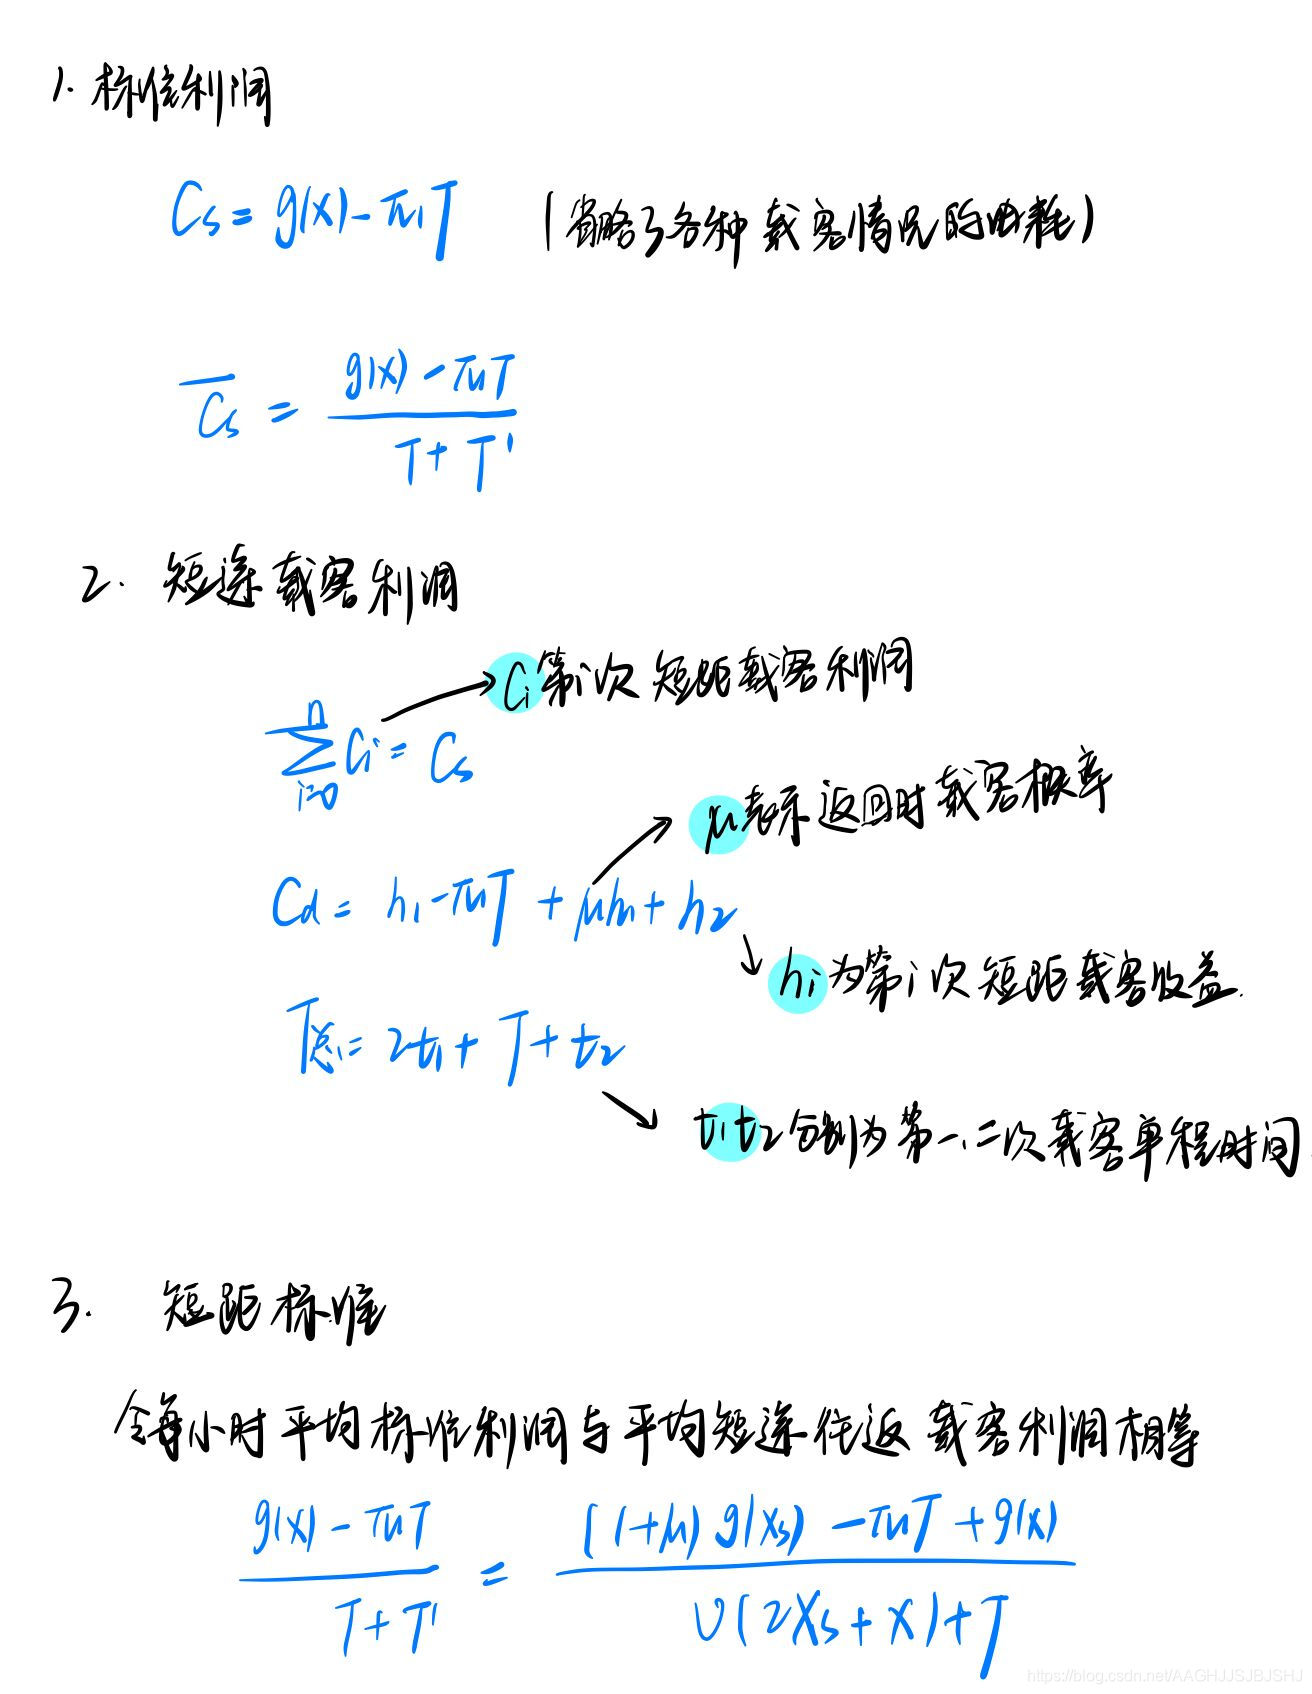 1. 标准利润
Cs = g(x) - πuT (省略了各种载客情况的油耗)
C̅s = (g(x) - πuT) / (T + T')
2. 短途载客利润
Ci 第i次短距载客利润
∑_{i=0}^{n} Ci = Cs
μ表示返回时载客概率
Cd = h1 - πuT + μh1 + h2
hi 为第i次短距载客收益.
T总 = 2t1 + T + t2
t1 t2 分别为第一、二次载客单程时间.
3. 短距标准
令每小时平均标准利润与平均短途往返载客利润相等
(g(x) - πuT) / (T + T') = ((1+μ) g(xs) - πuT + g(x)) / (v(2xs + x) + T)
https://blog.csdn.net/AAGHJJSJBJSHJ